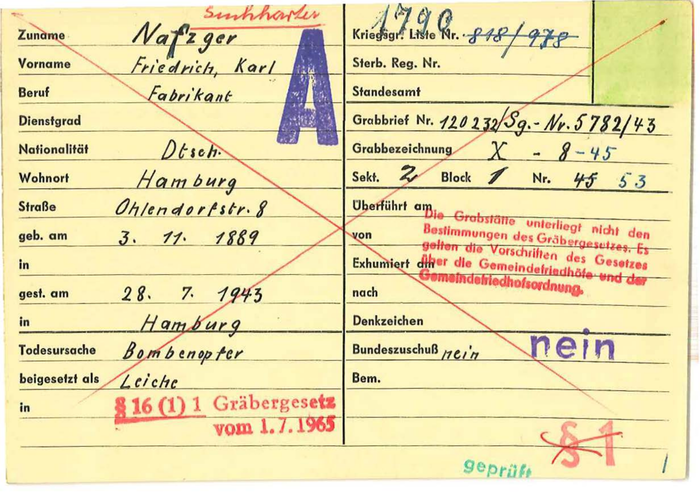 Suchkartei
Zuname Nafzger
Vorname Friedrich, Karl
Beruf Fabrikant
A
Dienstgrad
Nationalität Dtsch.
Wohnort Hamburg
Straße Ohlendorfstr. 8
geb. am 3. 11. 1889
in
gest. am 28. 7. 1943
in Hamburg
Todesursache Bombenopfer
beigesetzt als Leiche
in
§ 16 (1) 1 Gräbergesetz
vom 1.7.1965
1790
Kriegsgr. Liste Nr. 818/978
Sterb. Reg. Nr.
Standesamt
Grabbrief Nr. 120232/Sg.-Nr. 5782/43
Grabbezeichnung X - 8-45
Sekt. 2 Block 1 Nr. 45 53
Überführt am
von
Exhumiert am
nach
Die Grabstätte unterliegt nicht den
Bestimmungen des Gräbergesetzes. Es
gelten die Vorschriften des Gesetzes
über die Gemeindefriedhöfe und der
Gemeindefriedhofsordnung.
Denkzeichen
Bundeszuschuß nein nein
Bem.
§ 1
geprüft